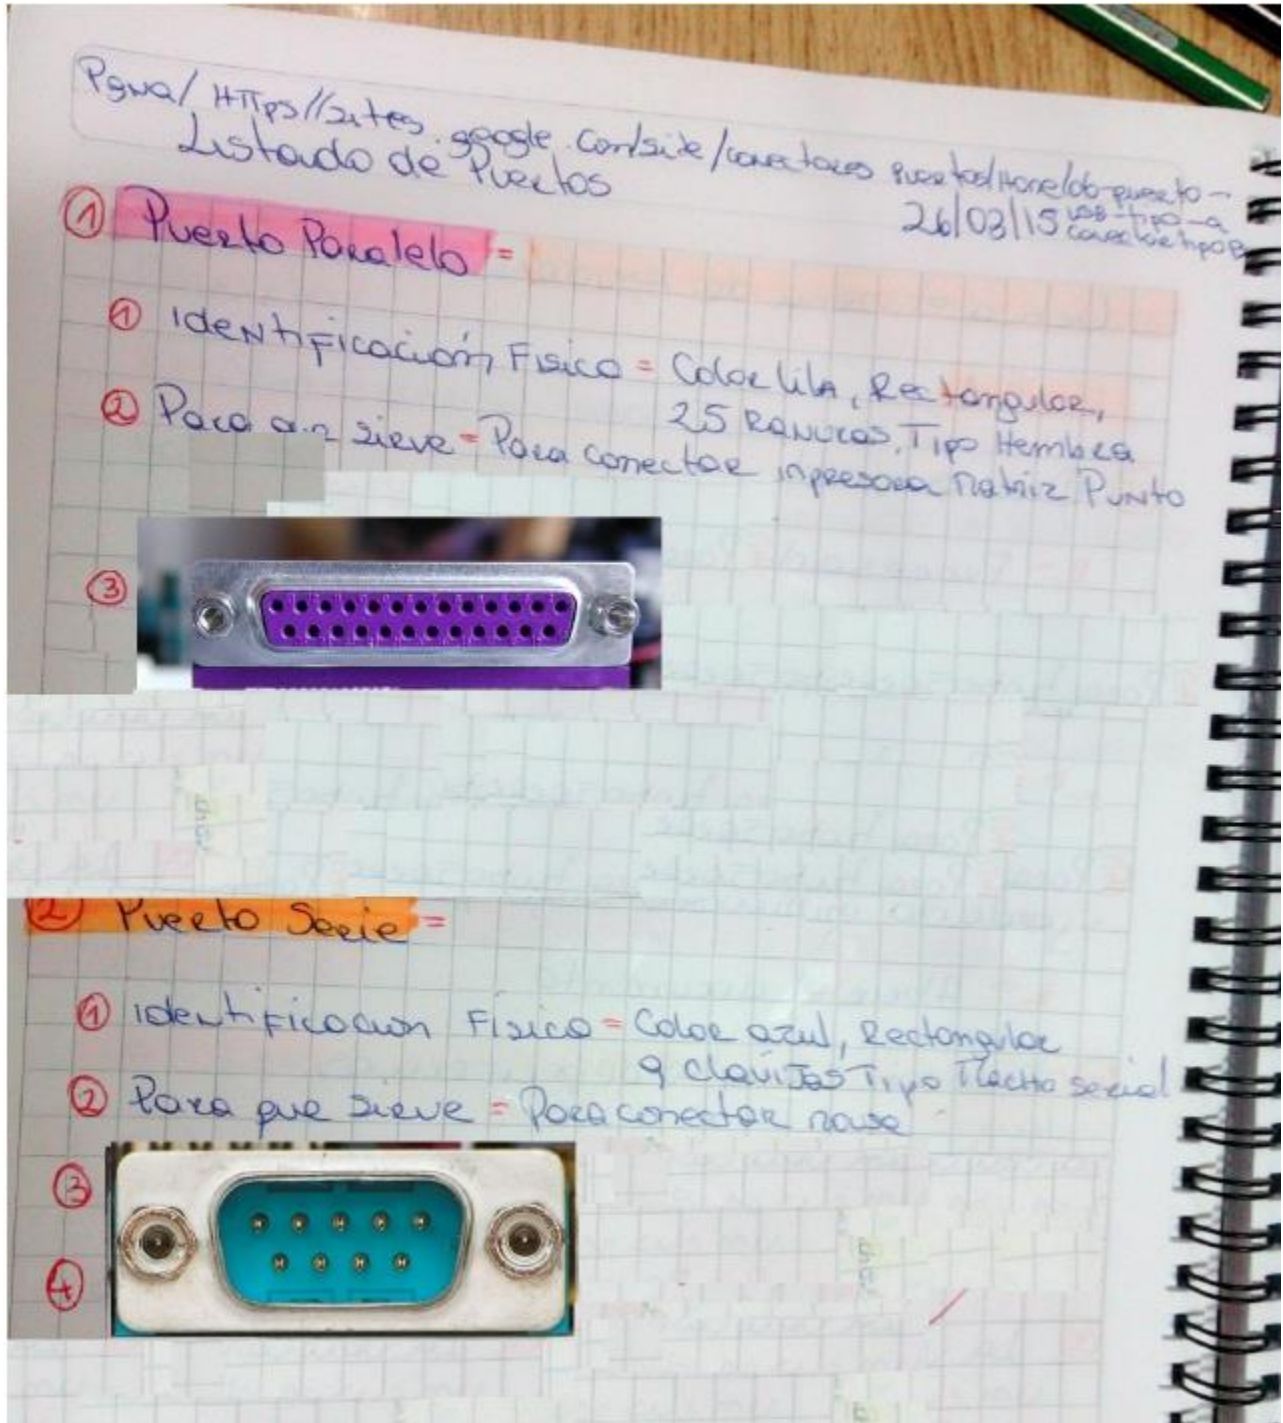 Pgna/ HTTps//sites.google.com/site/conectores puertos/Home/db-puerto-
usb-tipo-a
conector tipo B
Listado de Puertos
26/03/15
① Puerto Paralelo =
① Identificación Fisica = Color lila, Rectangular,
25 Ranuras, Tipo Hembra
② Para que sirve = Para conectar inpresora Matriz Punto
③
② Puerto Serie =
① Identificacion Fisica = Color azul, Rectangular
9 clavijas Tipo Macho serial
② Para que sirve = Para conectar mouse
③
④